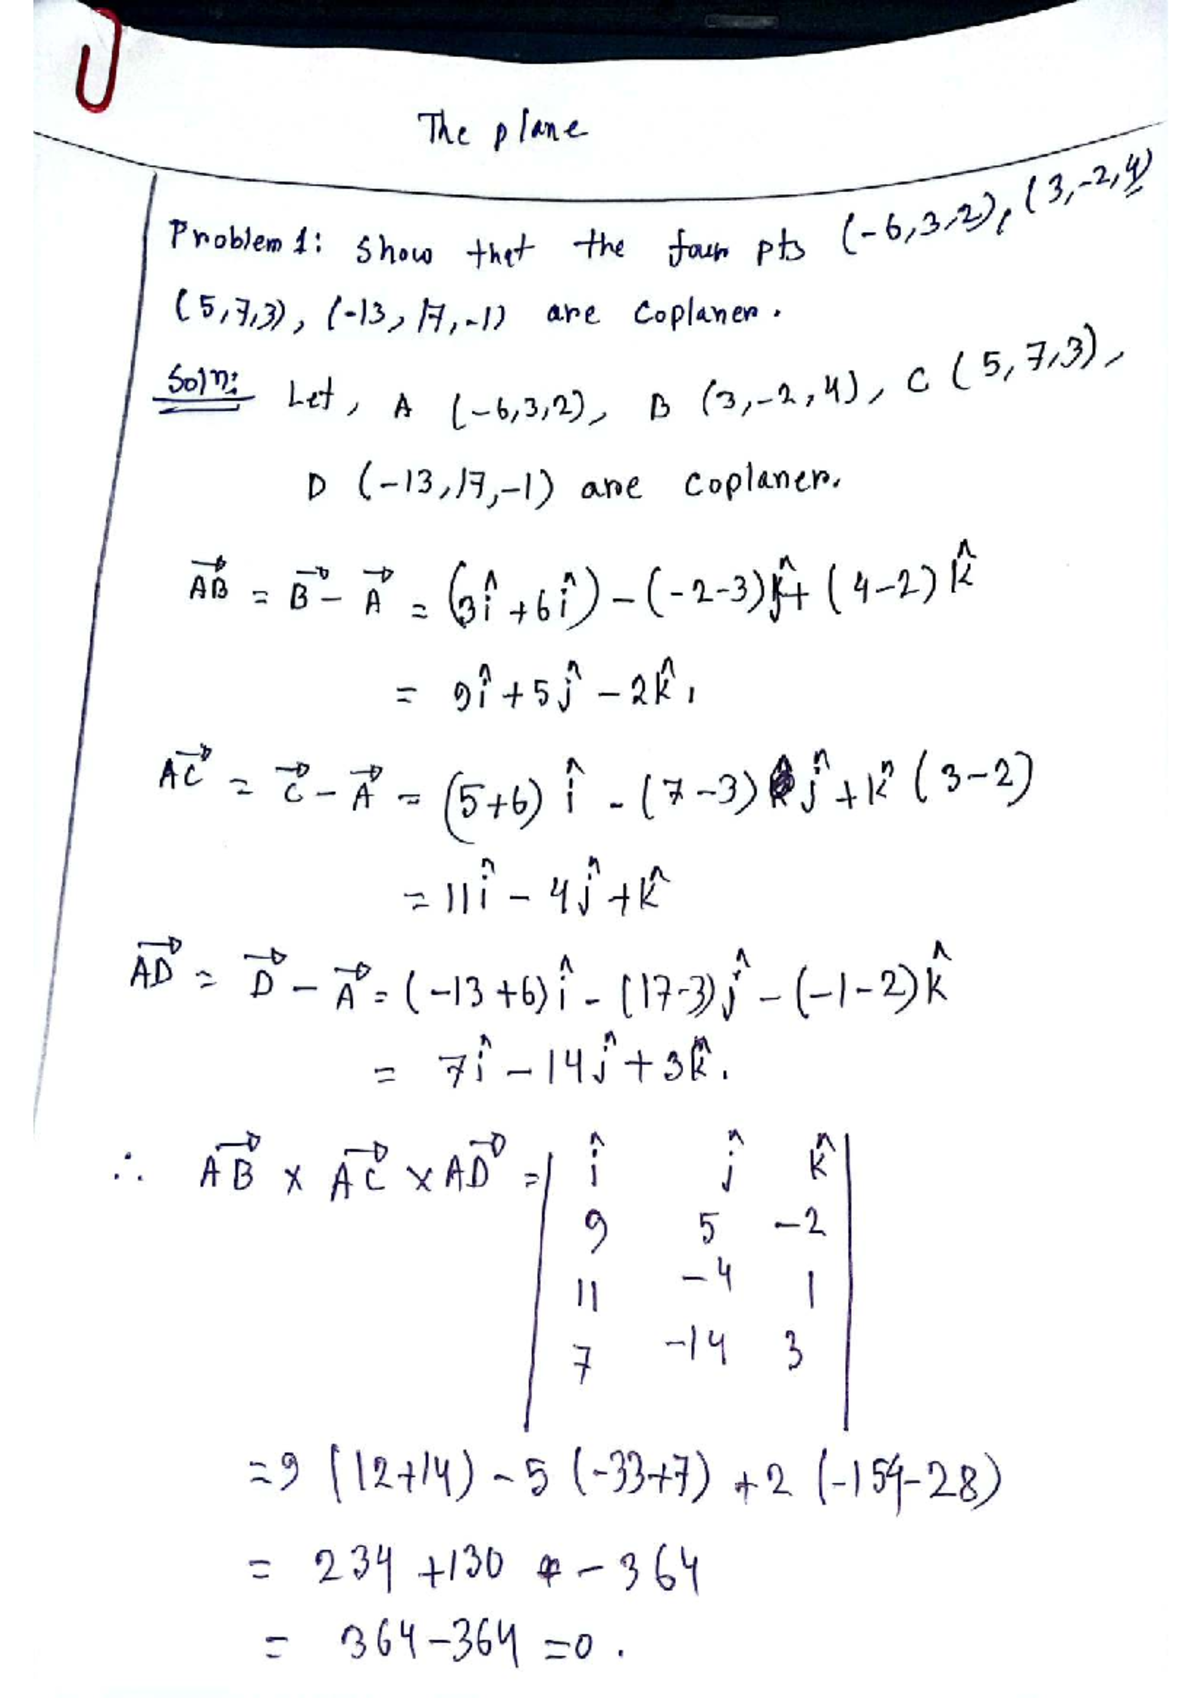 The plane
Problem 1: Show that the four pts (-6,3,2), (3,-2,4)
(5,7,3), (-13, 17,-1) are Coplaner.
Soln: Let, A (-6,3,2), B (3,-2,4), C (5,7,3),
D (-13,17,-1) are coplaner.
AB→ = B→ - A→ = (3î + 6î) - (-2-3)ĵ + (4-2) k̂
= 9î + 5ĵ - 2k̂,
AC→ = C→ - A→ = (5+6) î - (7-3) ĵ + k̂ (3-2)
= 11î - 4ĵ + k̂
AD→ = D→ - A→ = (-13+6) î - (17-3) ĵ - (-1-2) k̂
= 7î - 14ĵ + 3k̂.
∴ AB→ × AC→ × AD→ = | î ĵ k̂ |
9 5 -2
11 -4 1
7 -14 3
= 9 (12+14) - 5 (-33+7) + 2 (-154-28)
= 234 + 130 - 364
= 364 - 364 = 0.